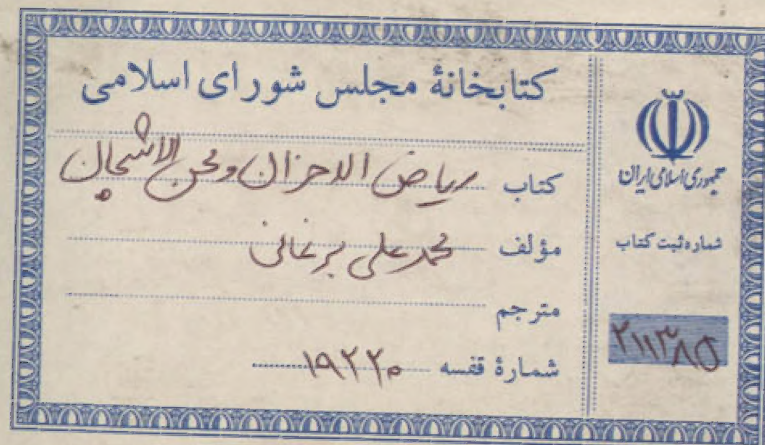 کتابخانهٔ مجلس شورای اسلامی
کتاب ریاض الاحزان و محن الاشجان
مؤلف محمد علی برغانی
مترجم
شمارهٔ قفسه ۱۹۲۲۰
جمهوری اسلامی ایران
شماره ثبت کتاب
۲۱۱۳۸۵